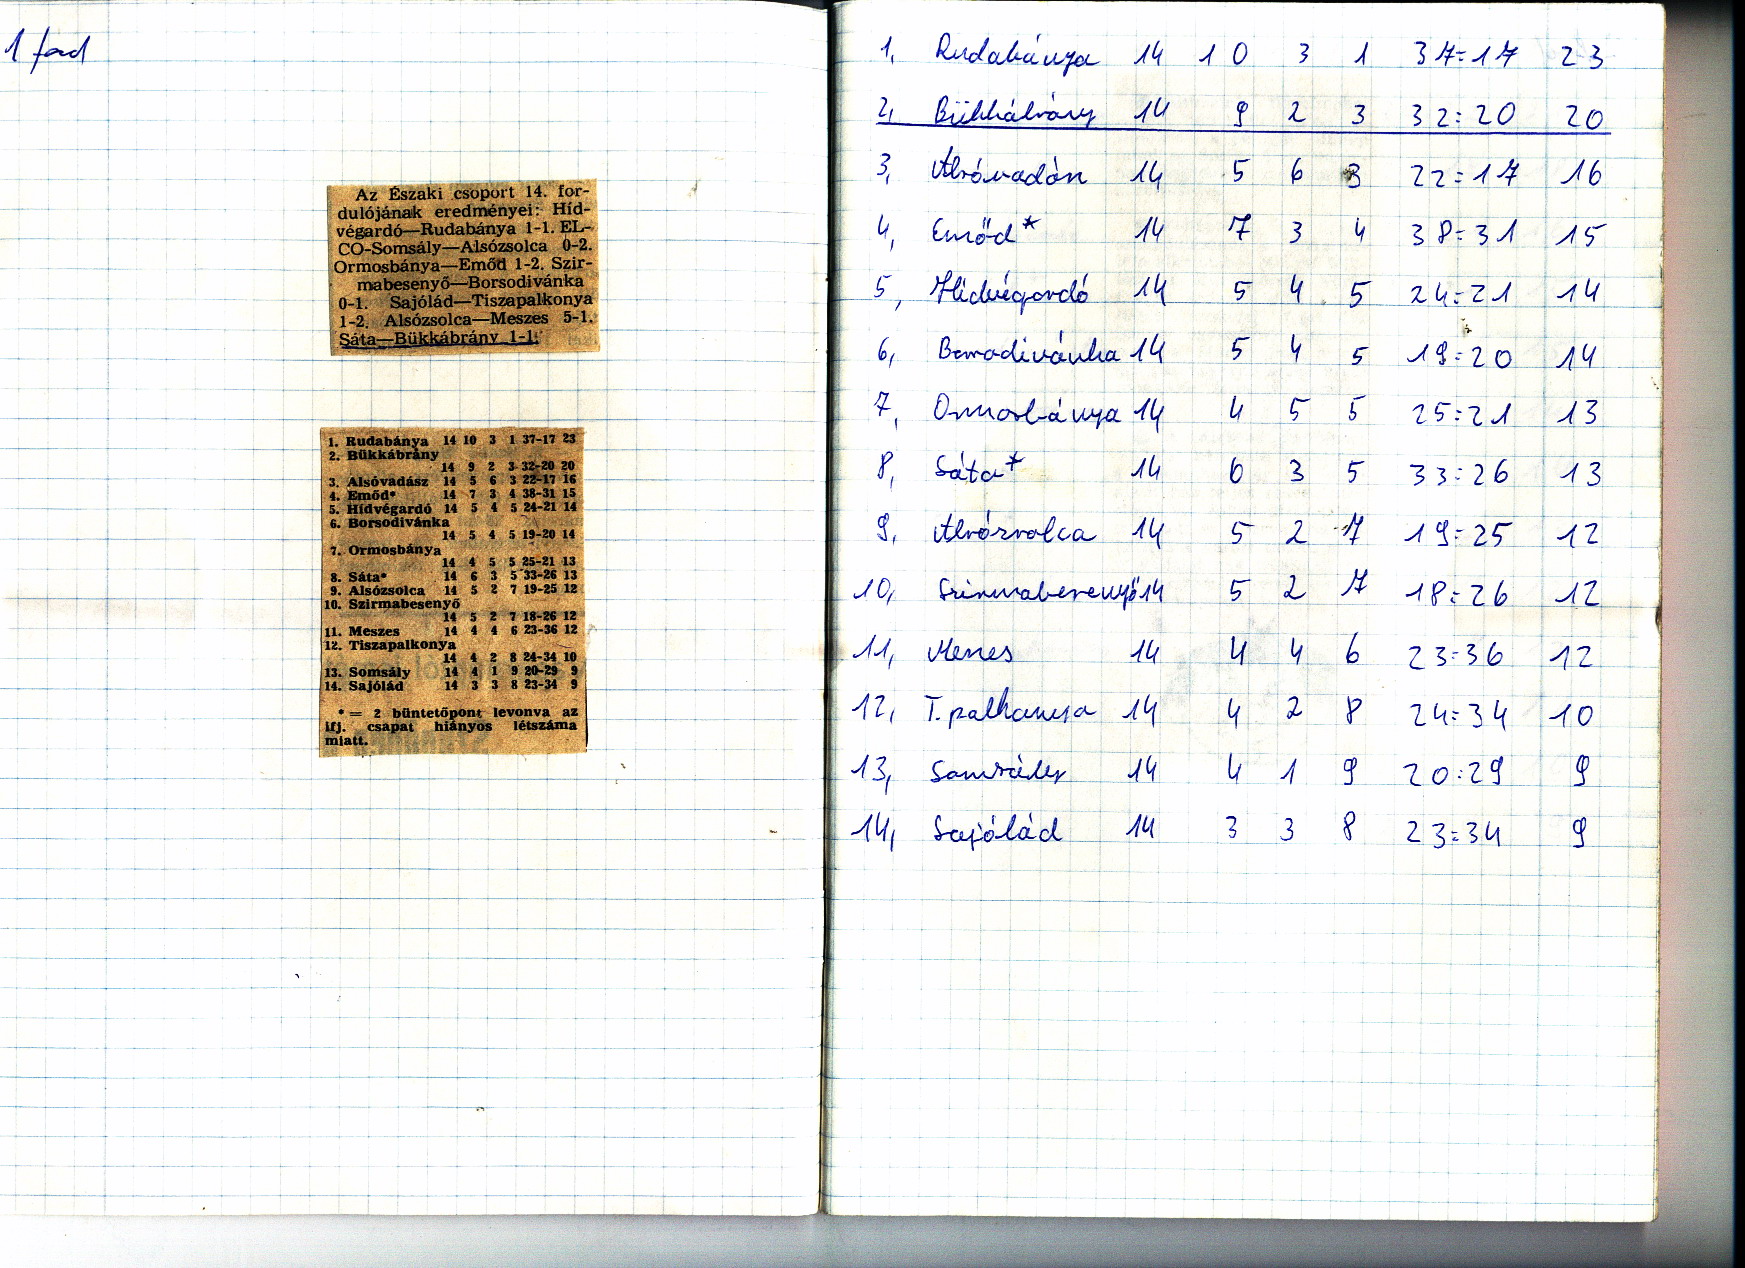 1 ford
Az Északi csoport 14. for-
dulójának eredményei: Híd-
végardó—Rudabánya 1-1. EL-
CO-Somsály—Alsózsolca 0-2.
Ormosbánya—Emőd 1-2. Szir-
mabesenyő—Borsodivánka
0-1. Sajólád—Tiszapalkonya
1-2. Alsózsolca—Meszes 5-1.
Sáta—Bükkábrány 1-1.
1. Rudabánya 14 10 3 1 37-17 23
2. Bükkábrány
14 9 2 3 32-20 20
3. Alsóvadász 14 5 6 3 22-17 16
4. Emőd* 14 7 3 4 38-31 15
5. Hídvégardó 14 5 4 5 24-21 14
6. Borsodivánka
14 5 4 5 19-20 14
7. Ormosbánya
14 4 5 5 25-21 13
8. Sáta* 14 6 3 5 33-26 13
9. Alsózsolca 14 5 2 7 19-25 12
10. Szirmabesenyő
14 5 2 7 18-26 12
11. Meszes 14 4 4 6 23-36 12
12. Tiszapalkonya
14 4 2 8 24-34 10
13. Somsály 14 4 1 9 20-29 9
14. Sajólád 14 3 3 8 23-34 9
* = 2 büntetőpont levonva az
ifj. csapat hiányos létszáma
miatt.
1, Rudabánya 14 10 3 1 37:17 23
2, Bükkábrány 14 9 2 3 32:20 20
3, Alsóvadász 14 5 6 3 22:17 16
4, Emőd* 14 7 3 4 38:31 15
5, Hídvégardó 14 5 4 5 24:21 14
6, Borsodivánka 14 5 4 5 19:20 14
7, Ormosbánya 14 4 5 5 25:21 13
8, Sáta* 14 6 3 5 33:26 13
9, Alsózsolca 14 5 2 7 19:25 12
10, Szirmabesenyő 14 5 2 7 18:26 12
11, Meszes 14 4 4 6 23:36 12
12, T.palkonya 14 4 2 8 24:34 10
13, Somsály 14 4 1 9 20:29 9
14, Sajólád 14 3 3 8 23:34 9